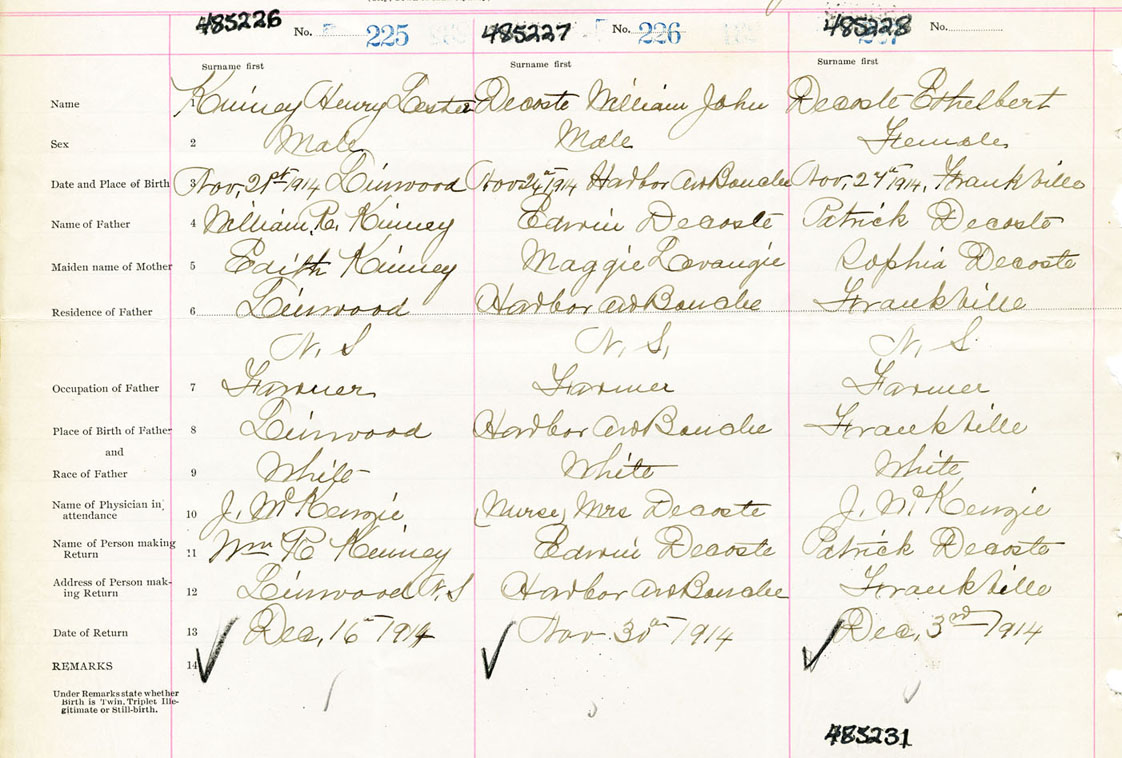 485226 No. 225 485227 No. 226 485228 No.
Surname first Surname first Surname first
Name 1 Kinney Henry Lester Decoste William John Decoste Ethelbert
Sex 2 Male Male Female
Date and Place of Birth 3 Nov, 21st 1914 Linwood Nov 24th 1914 Harbor au Bouche Nov, 27th 1914, Frankville
Name of Father 4 William R. Kinney Edwin Decoste Patrick Decoste
Maiden name of Mother 5 Edith Kinney Maggie Levangie Sophia Decoste
Residence of Father 6 Linwood Harbor au Bouche Frankville
N. S N. S, N. S.
Occupation of Father 7 Farmer Farmer Farmer
Place of Birth of Father 8 Linwood Harbor au Bouche Frankville
and
Race of Father 9 White White White
Name of Physician in attendance 10 J. McKenzie (Nurse) Mrs Decoste J. McKenzie
Name of Person making Return 11 Wm R Kinney Edwin Decoste Patrick Decoste
Address of Person mak-ing Return 12 Linwood N.S Harbor au Bouche Frankville
Date of Return 13 Dec, 16th 1914 Nov. 30th 1914 Dec, 3rd 1914
REMARKS 14
Under Remarks state whether
Birth is Twin, Triplet Ille-
gitimate or Still-birth.
485231